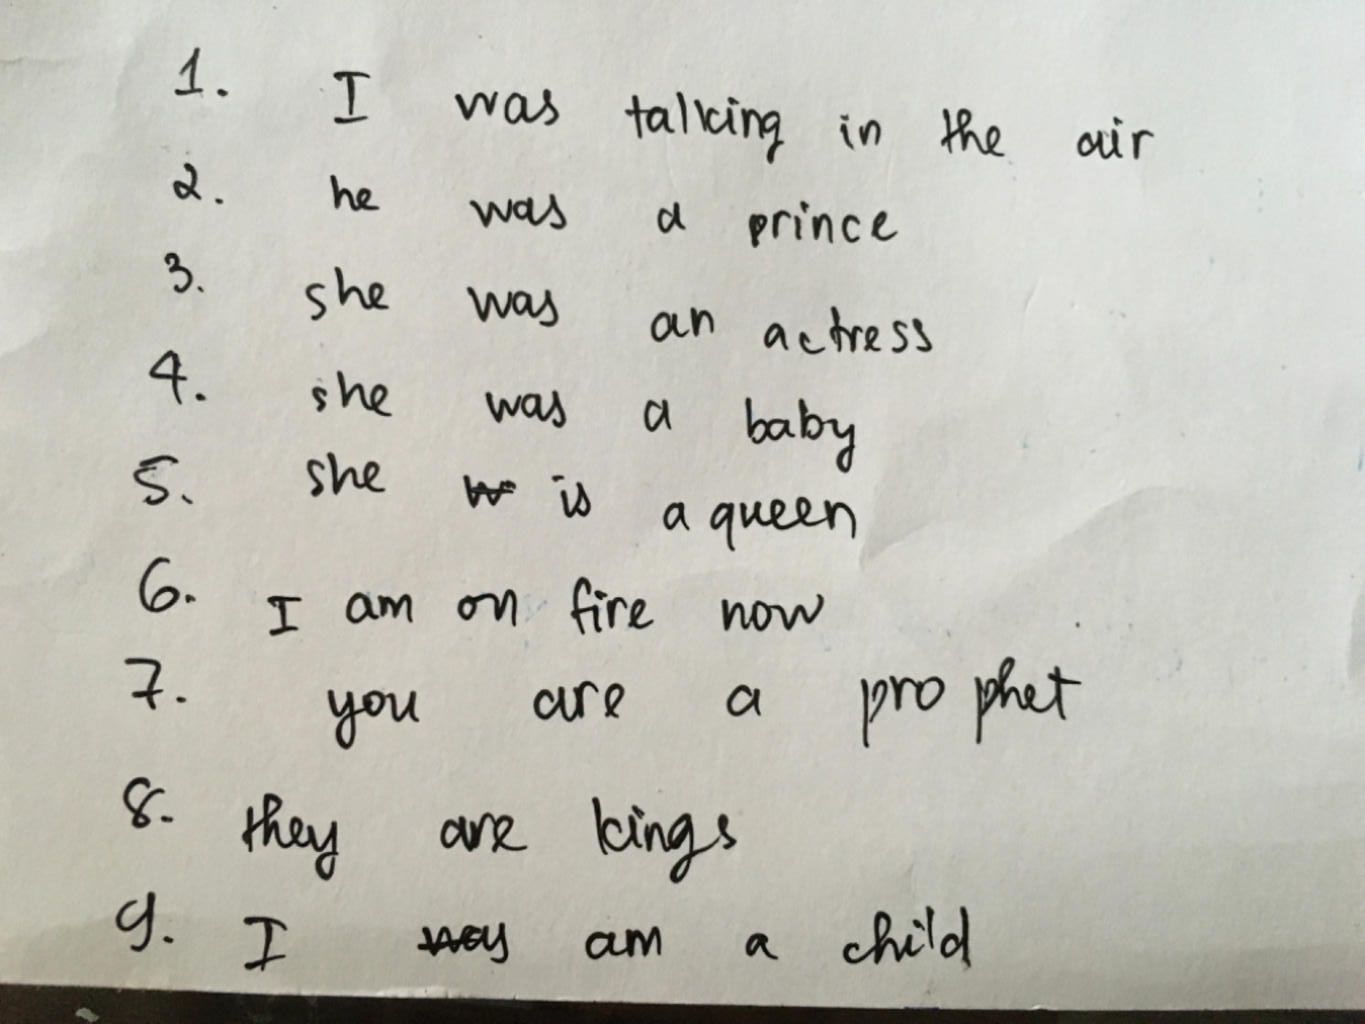 1. I was talking in the air
2. he was a prince
3. she was an actress
4. she was a baby
5. she is a queen
6. I am on fire now
7. you are a prophet
8. they are kings
9. I am a child